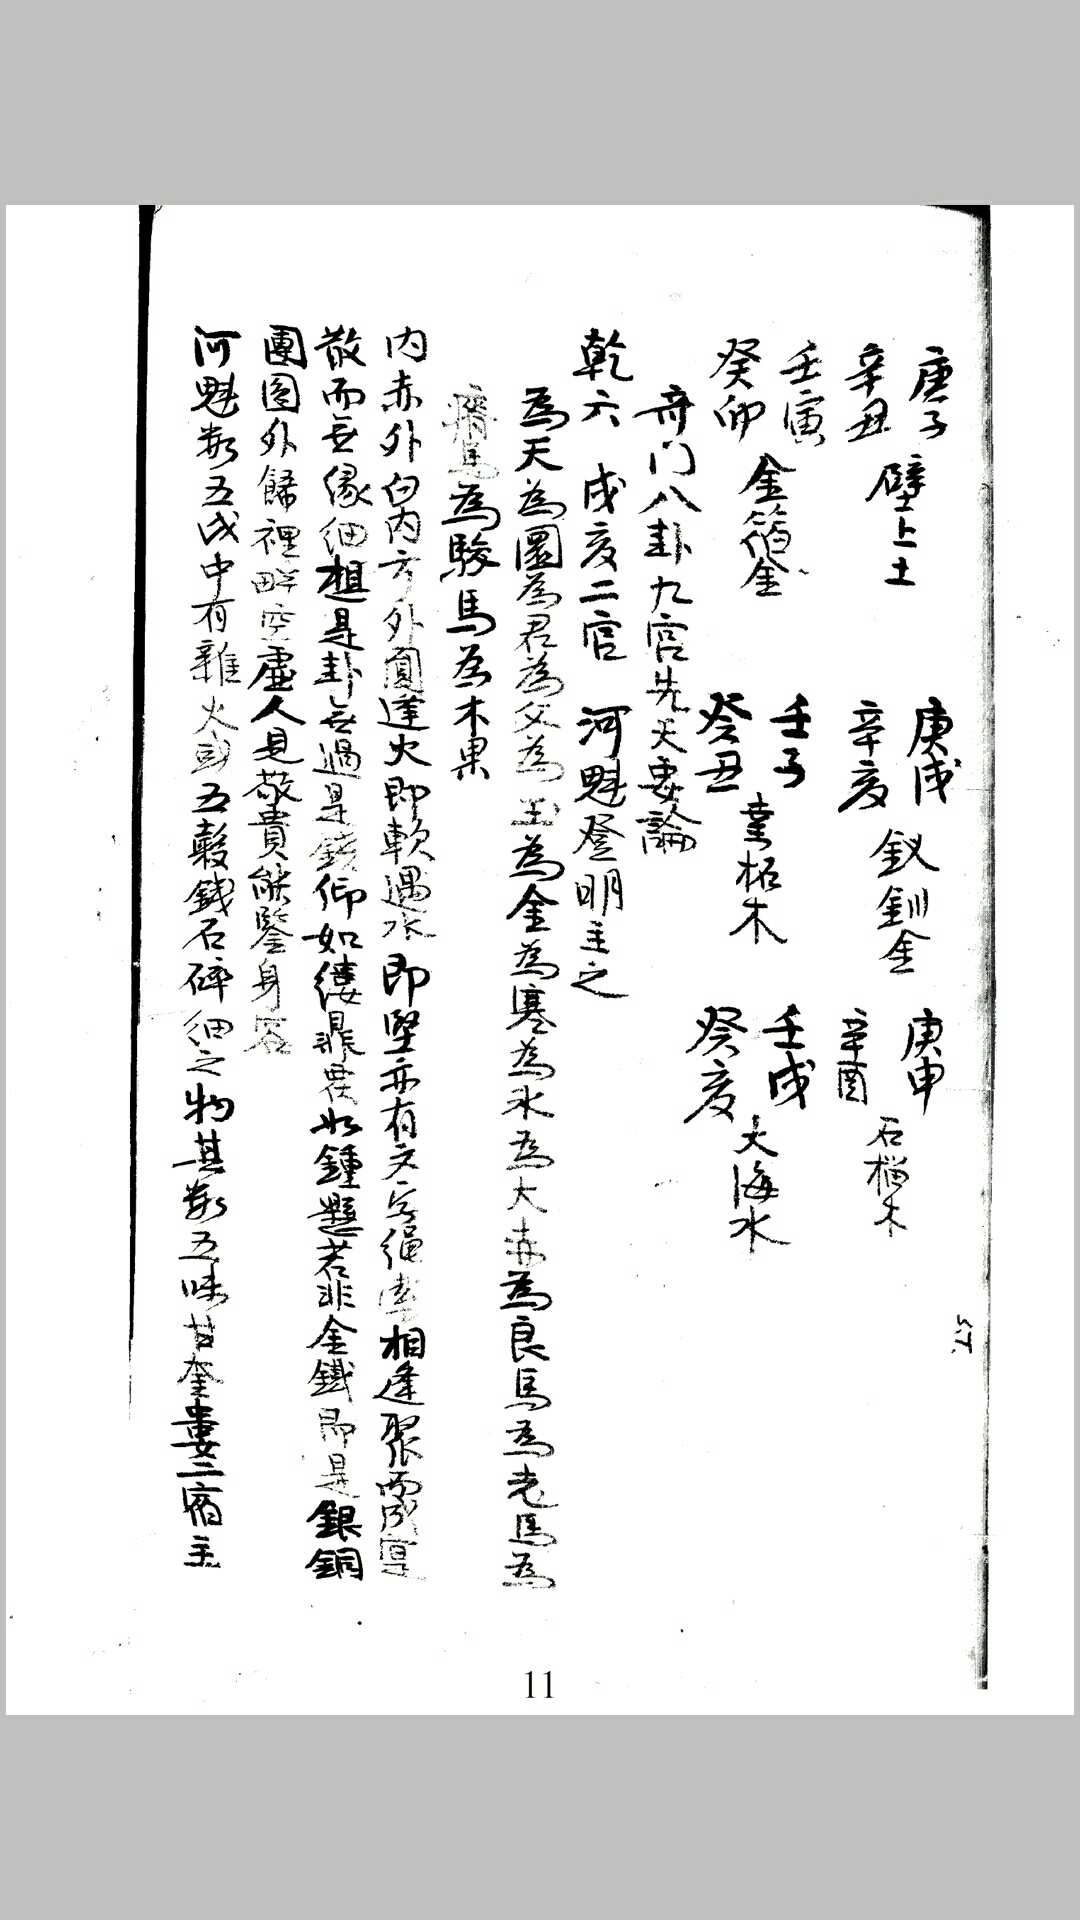 庚子
辛丑
壁上土
庚戌
辛亥
釵釧金
庚申
辛酉
石榴木
壬寅
癸卯
金箔金
壬子
癸丑
桑柘木
壬戌
癸亥
大海水
奇门八卦九宫先天要論
乾六 戌亥二宫 河魁登明主之
為天為圜為君為父為玉為金為寒為氷為大赤為良馬為老馬為
瘠馬為駿馬為木果
内赤外白内方外圓逢火即軟遇水即堅亦有文字繩串相逢聚而成
散而无緣細想是卦无過是錢仰如 悬如鍾懸若非金鐵即是銀銅
團圓外歸裡 空虛人見敬貴能鑒身容
河魁数五戌中有雜火 五穀錢石碎細之物其数五味甘奎婁二宿主
11